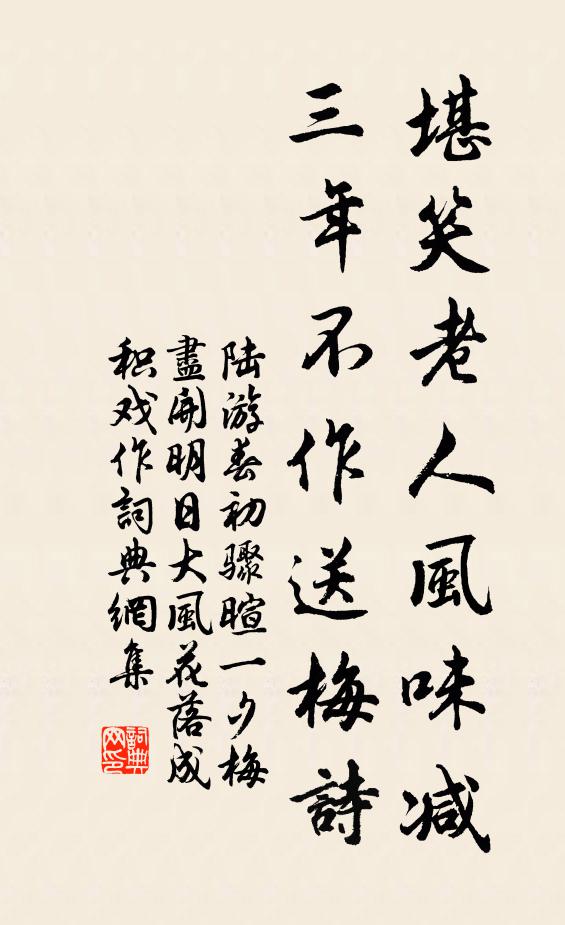 堪笑老人風味减
三年不作送梅詩
陆游春初骤暄一夕梅
盡開明日大風花落成
积戏作詞典網集
詞典网印